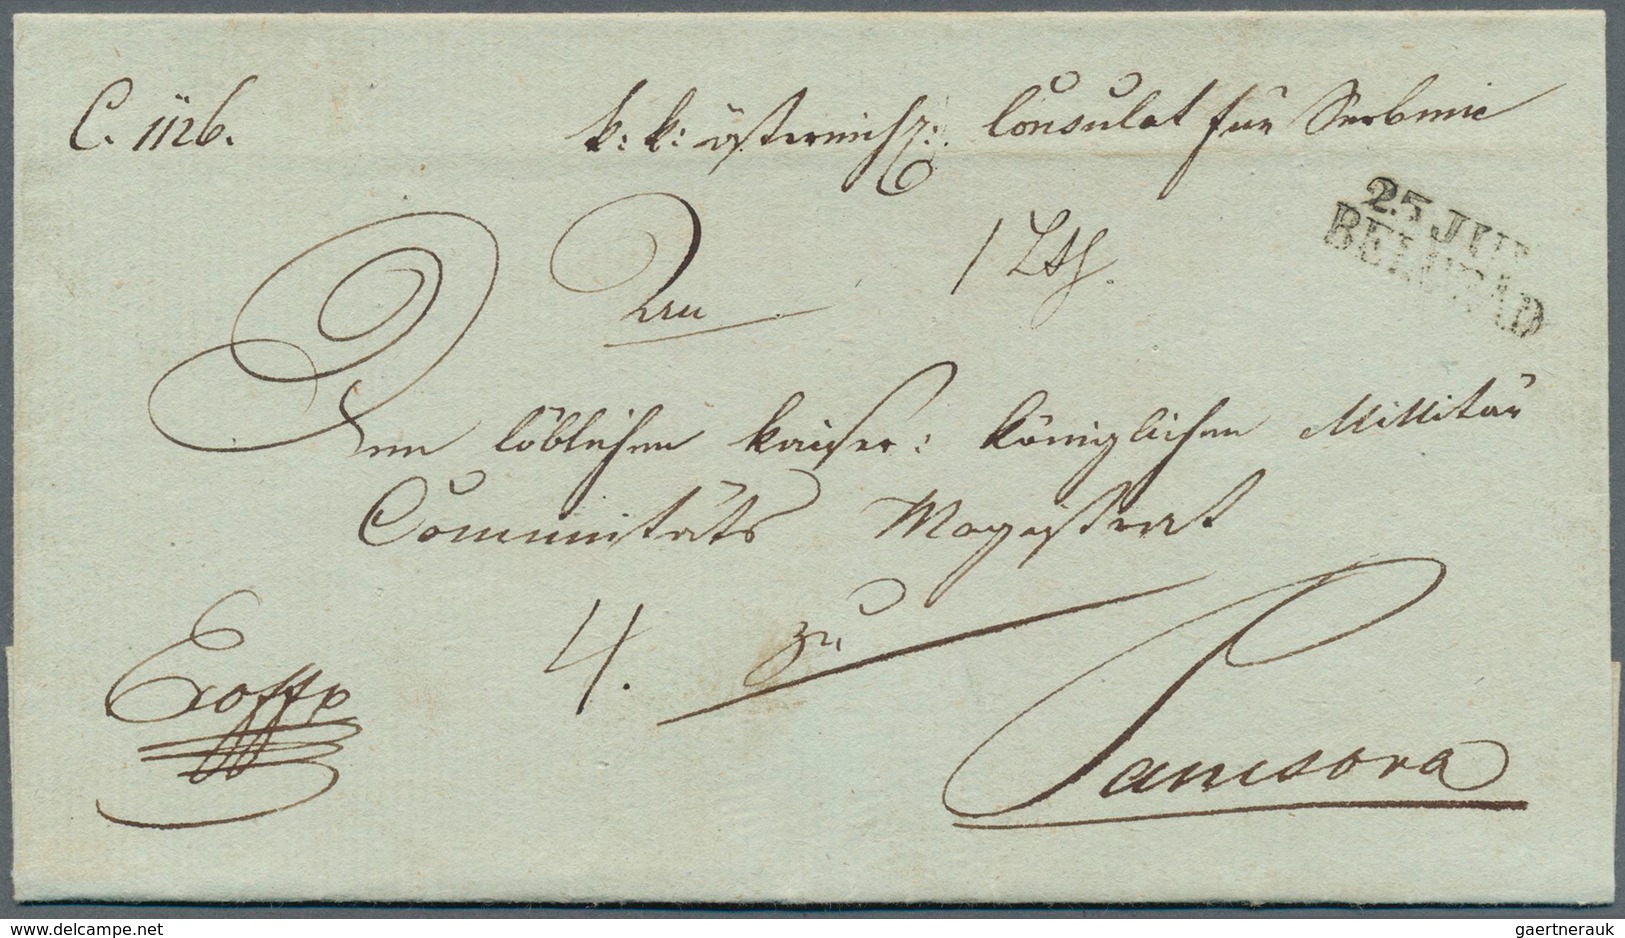 C. 1126. k: k: östereichz: Consulat für Serbien
25 JUL
BELGRAD
An 1 Lth.
Den löblichen kaiser: königlichen Millitär
Communitäts Magistrat
4. zu
Exoffo
Pancsova
delcampe.net
gaertnerauk